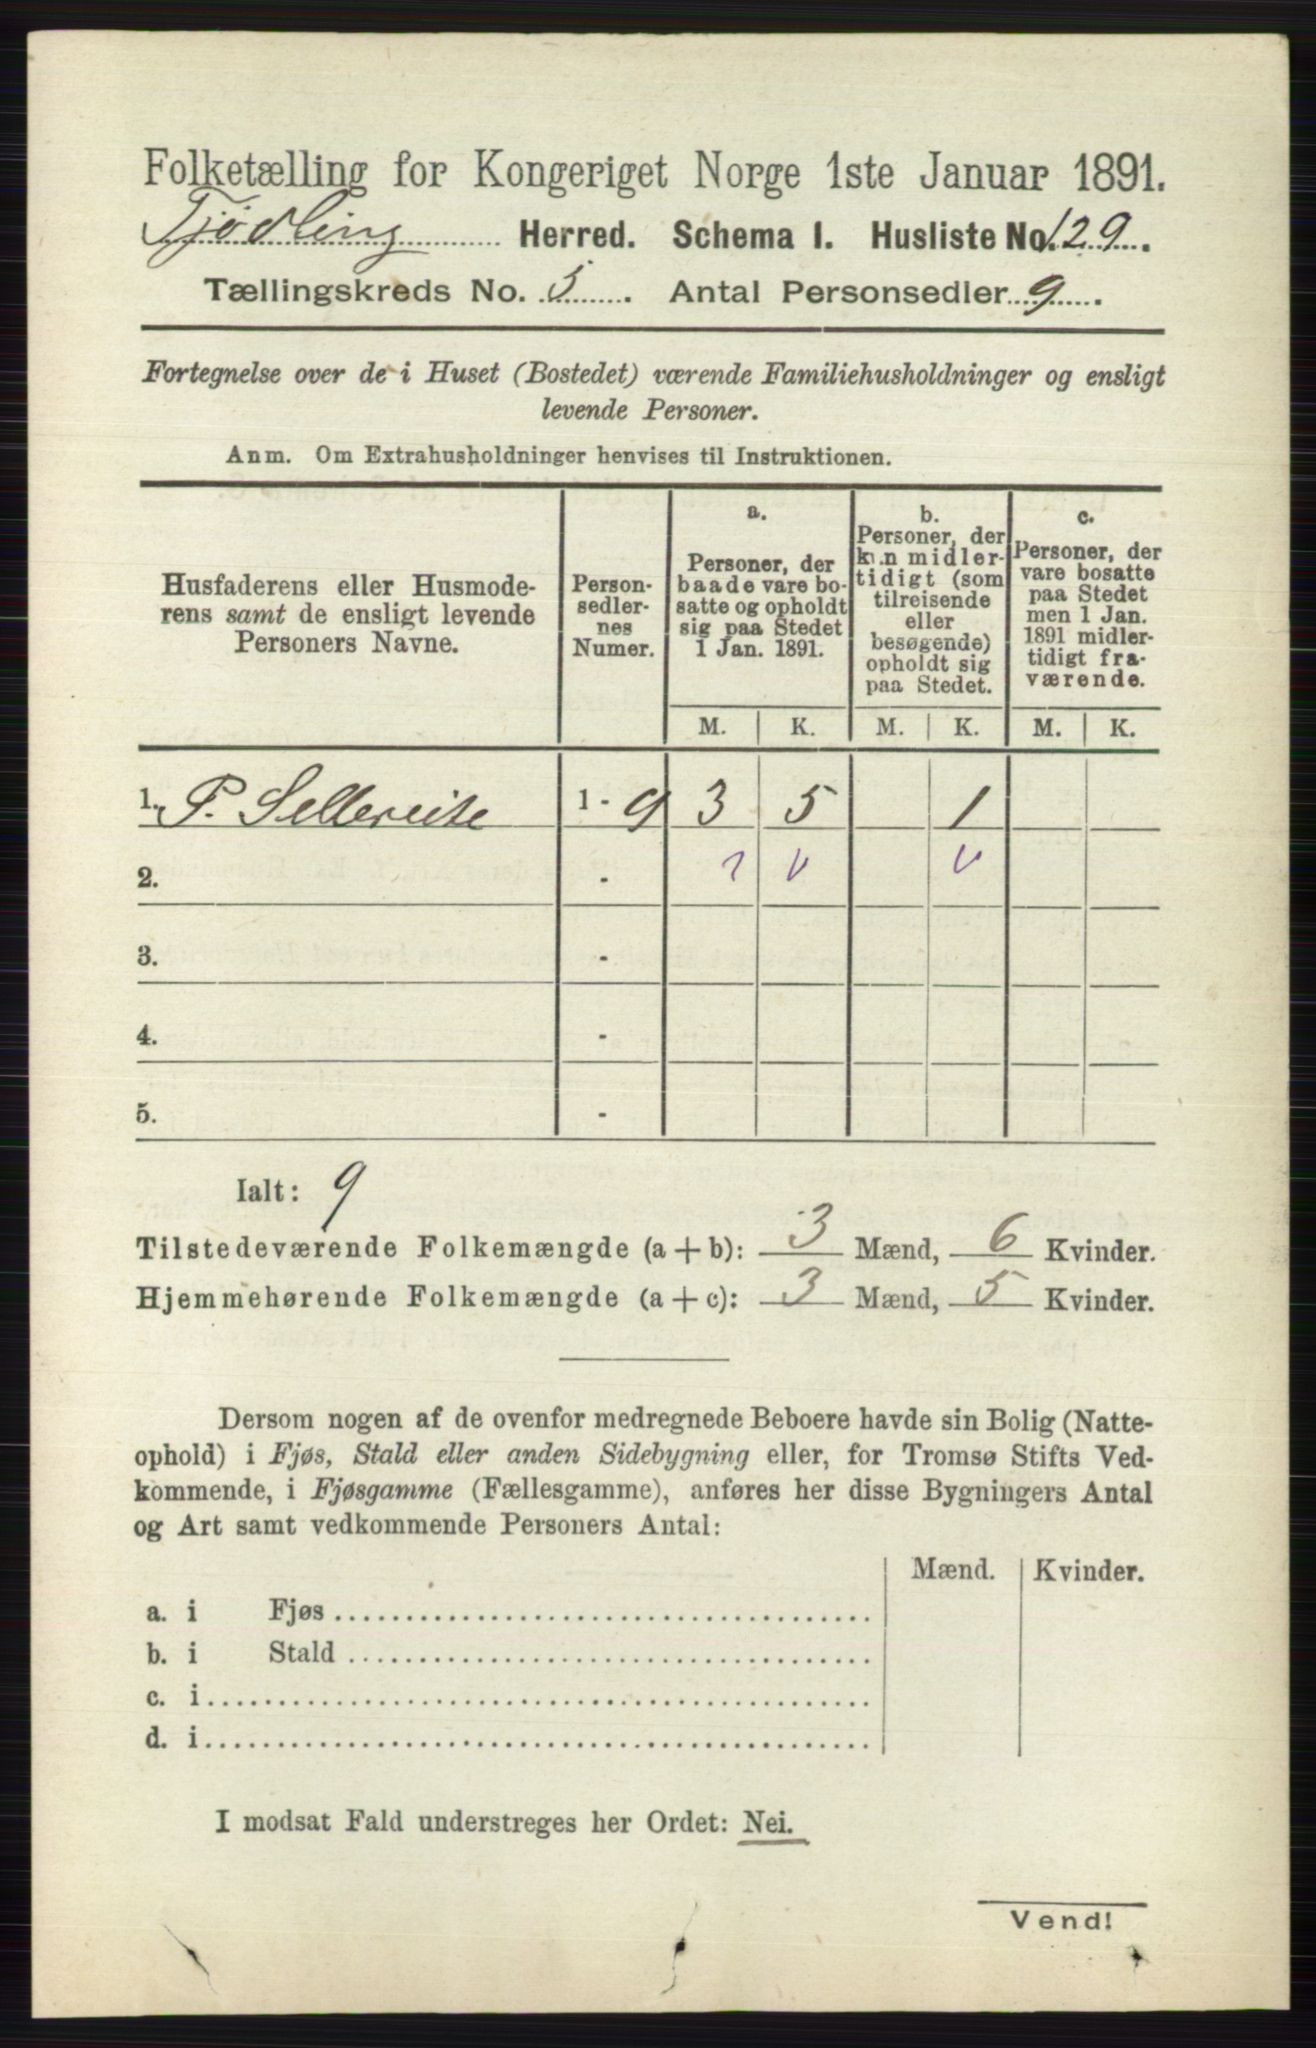 Folketælling for Kongeriget Norge 1ste Januar 1891.
Tjødling Herred. Schema I. Husliste No. 129.
Tællingskreds No. 5. Antal Personsedler 9.
Fortegnelse over de i Huset (Bostedet) værende Familiehusholdninger og ensligt
levende Personer.
Anm. Om Extrahusholdninger henvises til Instruktionen.
Husfaderens eller Husmode-
rens samt de ensligt levende
Personers Navne.
Person-
sedler-
nes
Numer.
a.
Personer, der
baade vare bo-
satte og opholdt
sig paa Stedet
1 Jan. 1891.
b.
Personer, der
kun midler-
tidigt (som
tilreisende
eller
besøgende)
opholdt sig
paa Stedet.
c.
Personer, der
vare bosatte
paa Stedet
men 1 Jan.
1891 midler-
tidigt fra-
værende.
M. K. M. K. M. K.
1. P. Sellereite 1 - 9 3 5 1
2. -
3. -
4. -
5. -
Ialt: 9
Tilstedeværende Folkemængde (a + b): 3 Mænd, 6 Kvinder.
Hjemmehørende Folkemængde (a + c): 3 Mænd, 5 Kvinder.
Dersom nogen af de ovenfor medregnede Beboere havde sin Bolig (Natte-
ophold) i Fjøs, Stald eller anden Sidebygning eller, for Tromsø Stifts Ved-
kommende, i Fjøsgamme (Fællesgamme), anføres her disse Bygningers Antal
og Art samt vedkommende Personers Antal:
Mænd. Kvinder.
a. i Fjøs
b. i Stald
c. i
d. i
I modsat Fald understreges her Ordet: Nei.
Vend!